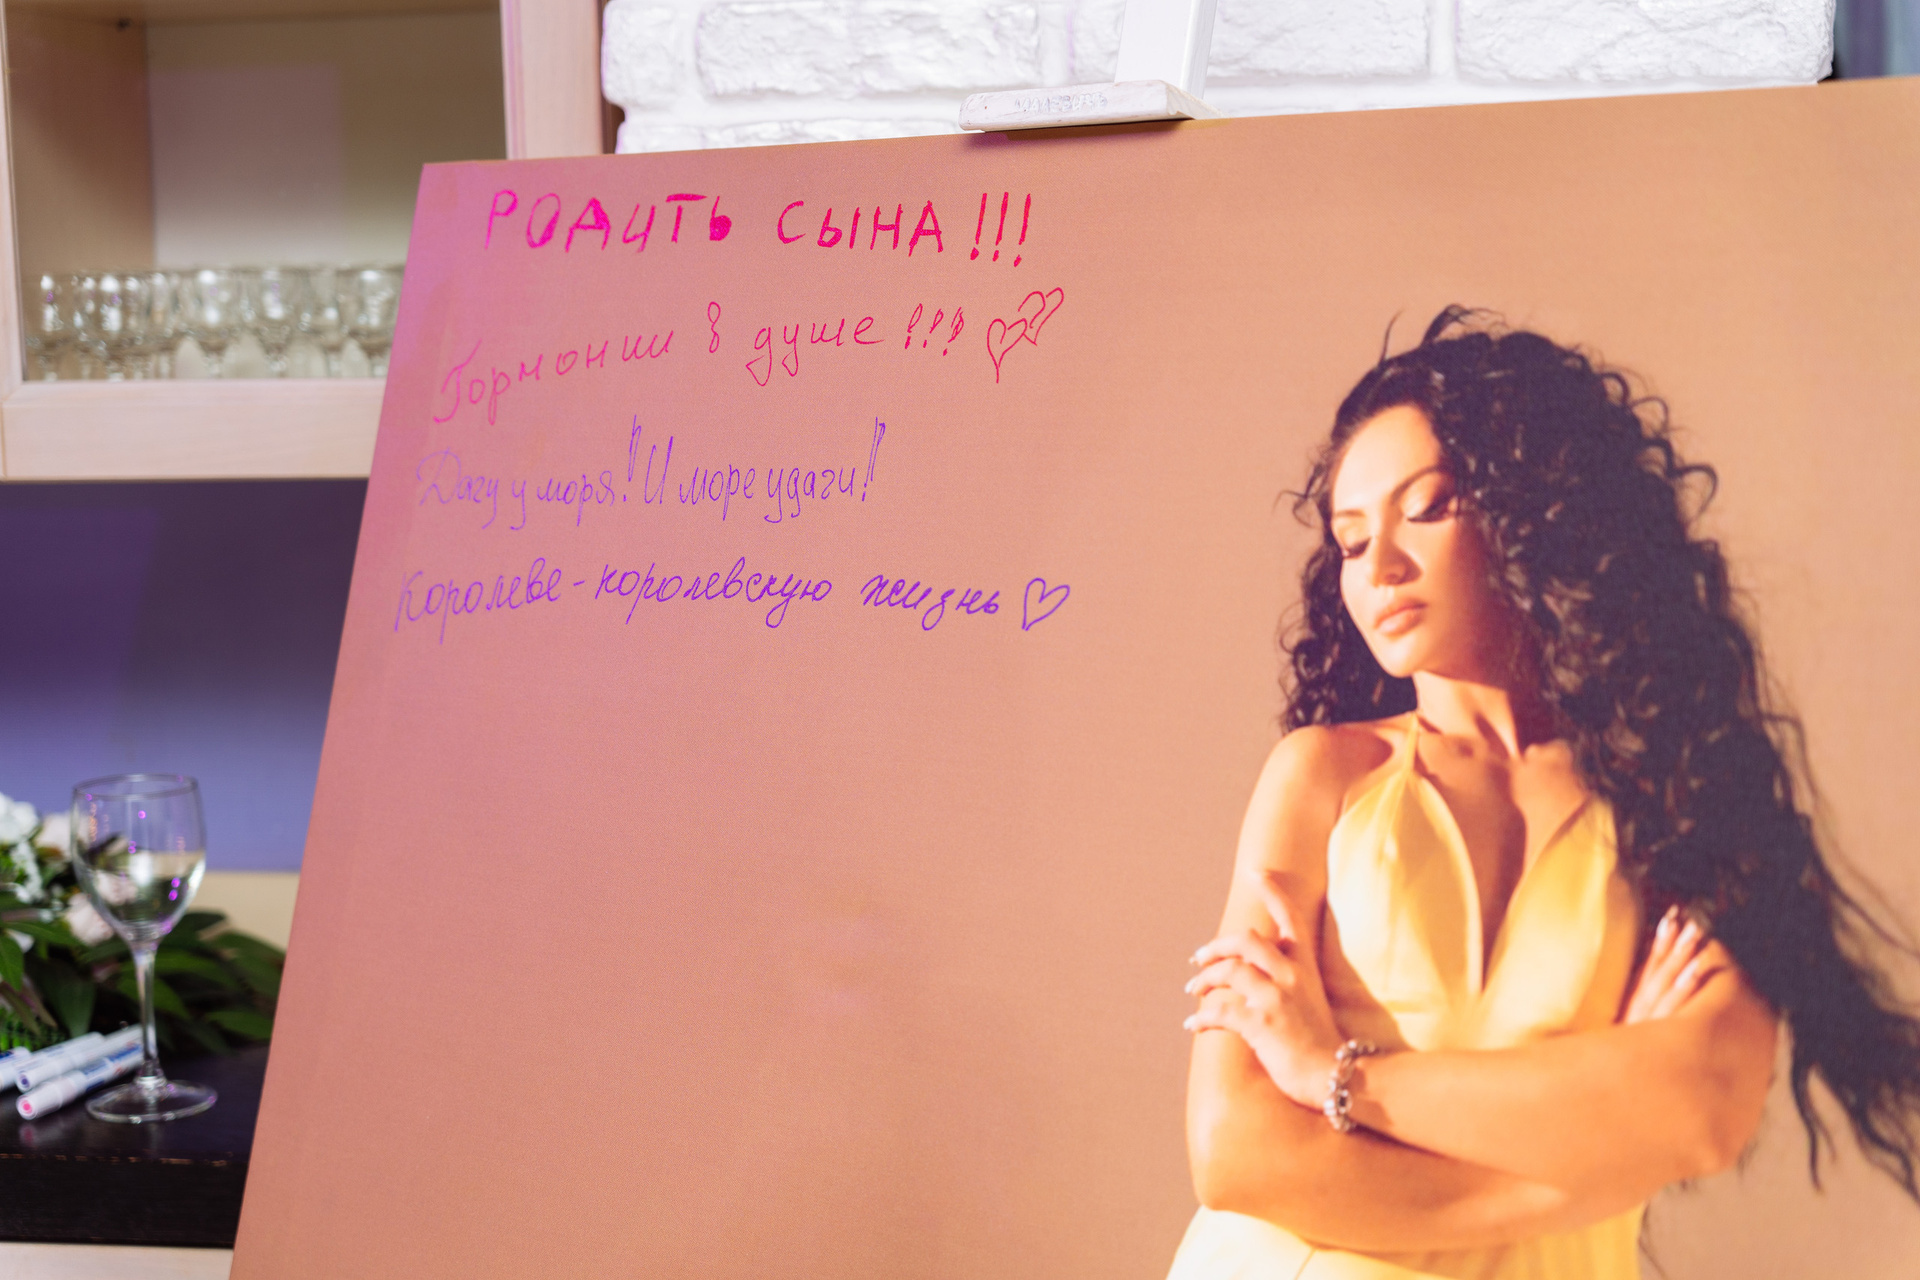 РОДИТЬ СЫНА!!!
Гормонии в душе!!!
Дачу у моря! И море удачи!
Королеве-королевскую жизнь